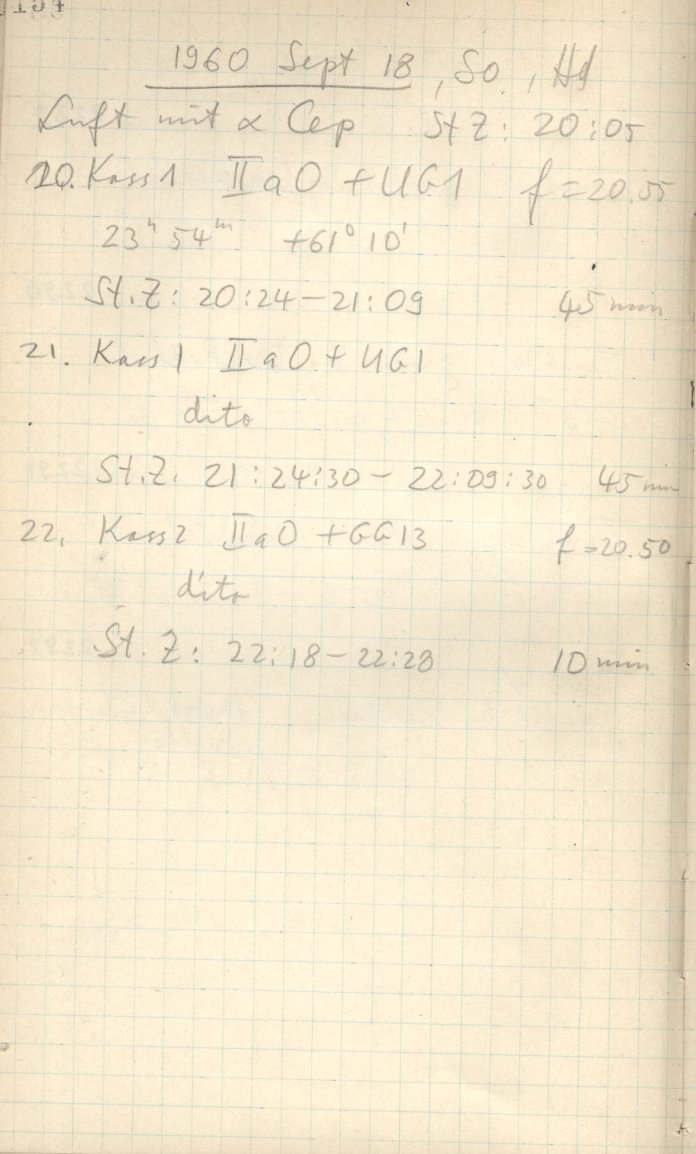 1960 Sept 18, So, Hd
Luft mit α Cep St Z: 20:05
20. Kass 1 II a O + UG1 f = 20.55
23ʰ 54ᵐ +61° 10'
St. Z: 20:24 – 21:09 45 min
21. Kass 1 II a O + UG1
dito
St. Z. 21:24:30 – 22:09:30 45 min
22. Kass 2 II a O + GG13 f = 20.50
dito
St. Z: 22:18 – 22:28 10 min